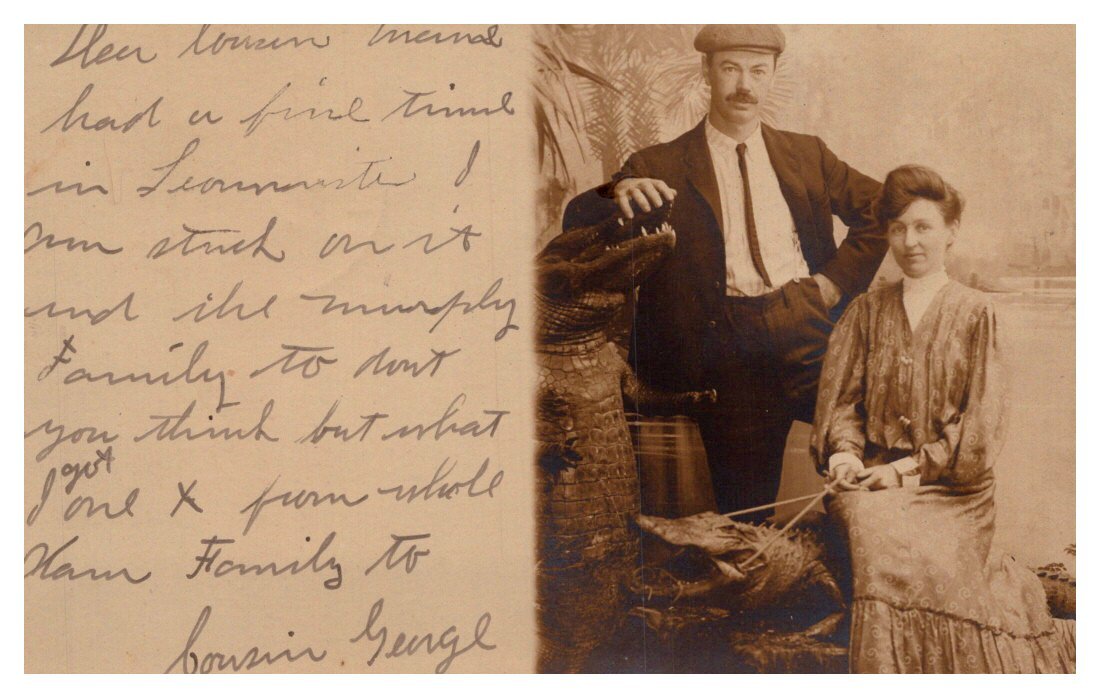 Dear Cousin
had a fine time
in Leominster I
am stuck on it
and the murphy
Family to dont
you think but what
I got one X from whole
Ham Family to
Cousin George